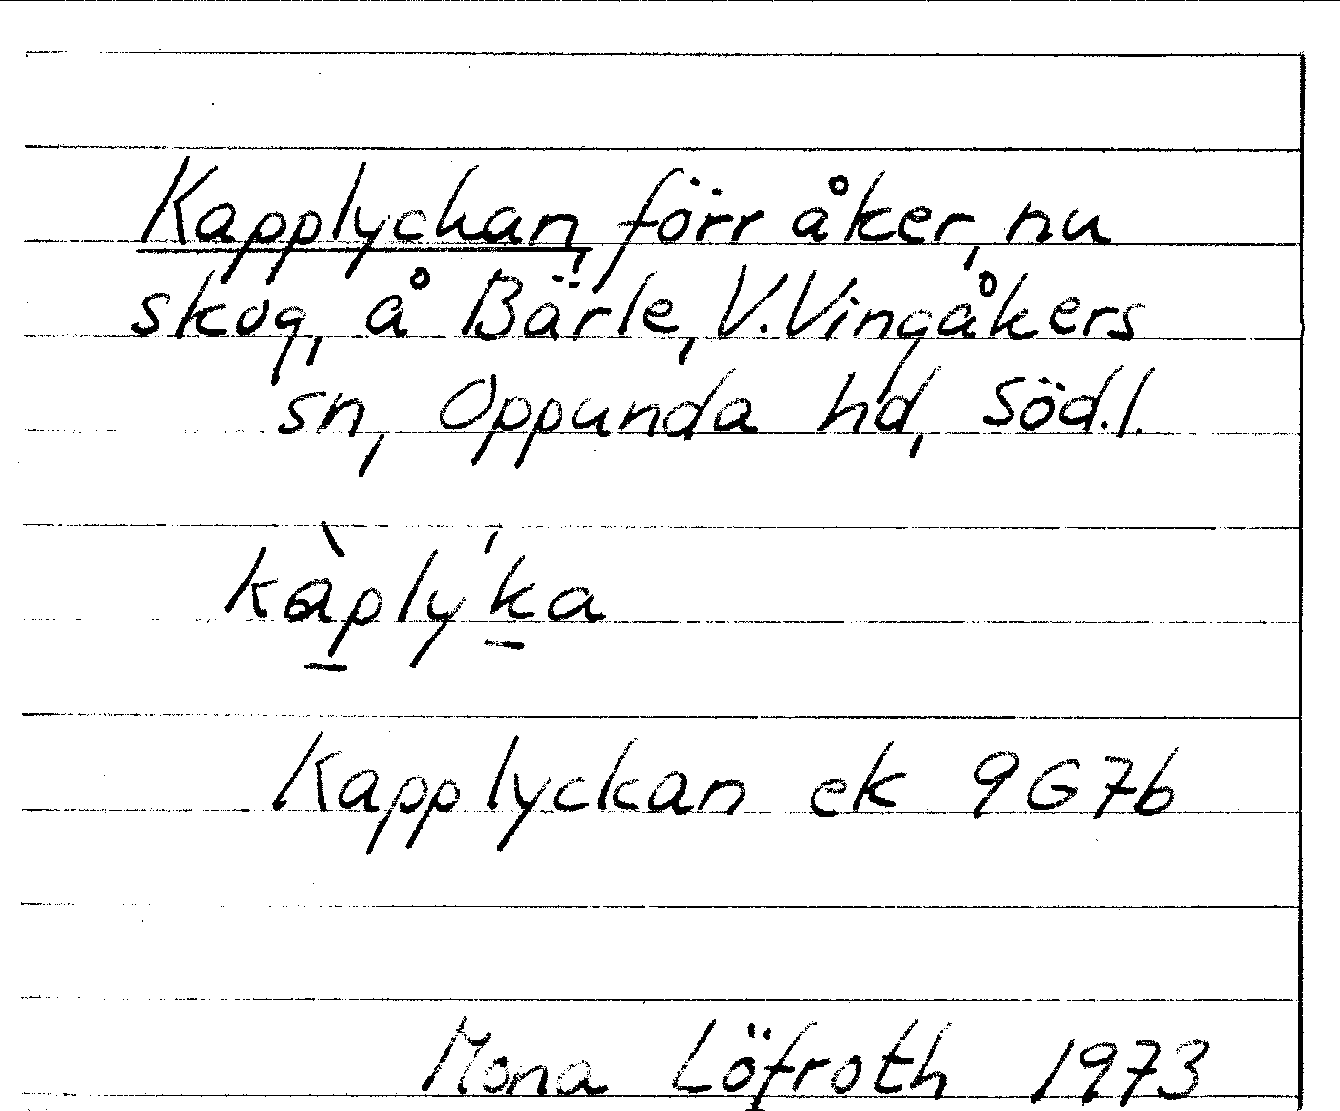 Kapplyckan, förr åker, nu
skog, å Bärle, V. Vingåkers
sn, Oppunda hd, Söd.l.
kàp̲ly´k̲a
Kapplyckan ek 9G7b
Mona Löfroth 1973